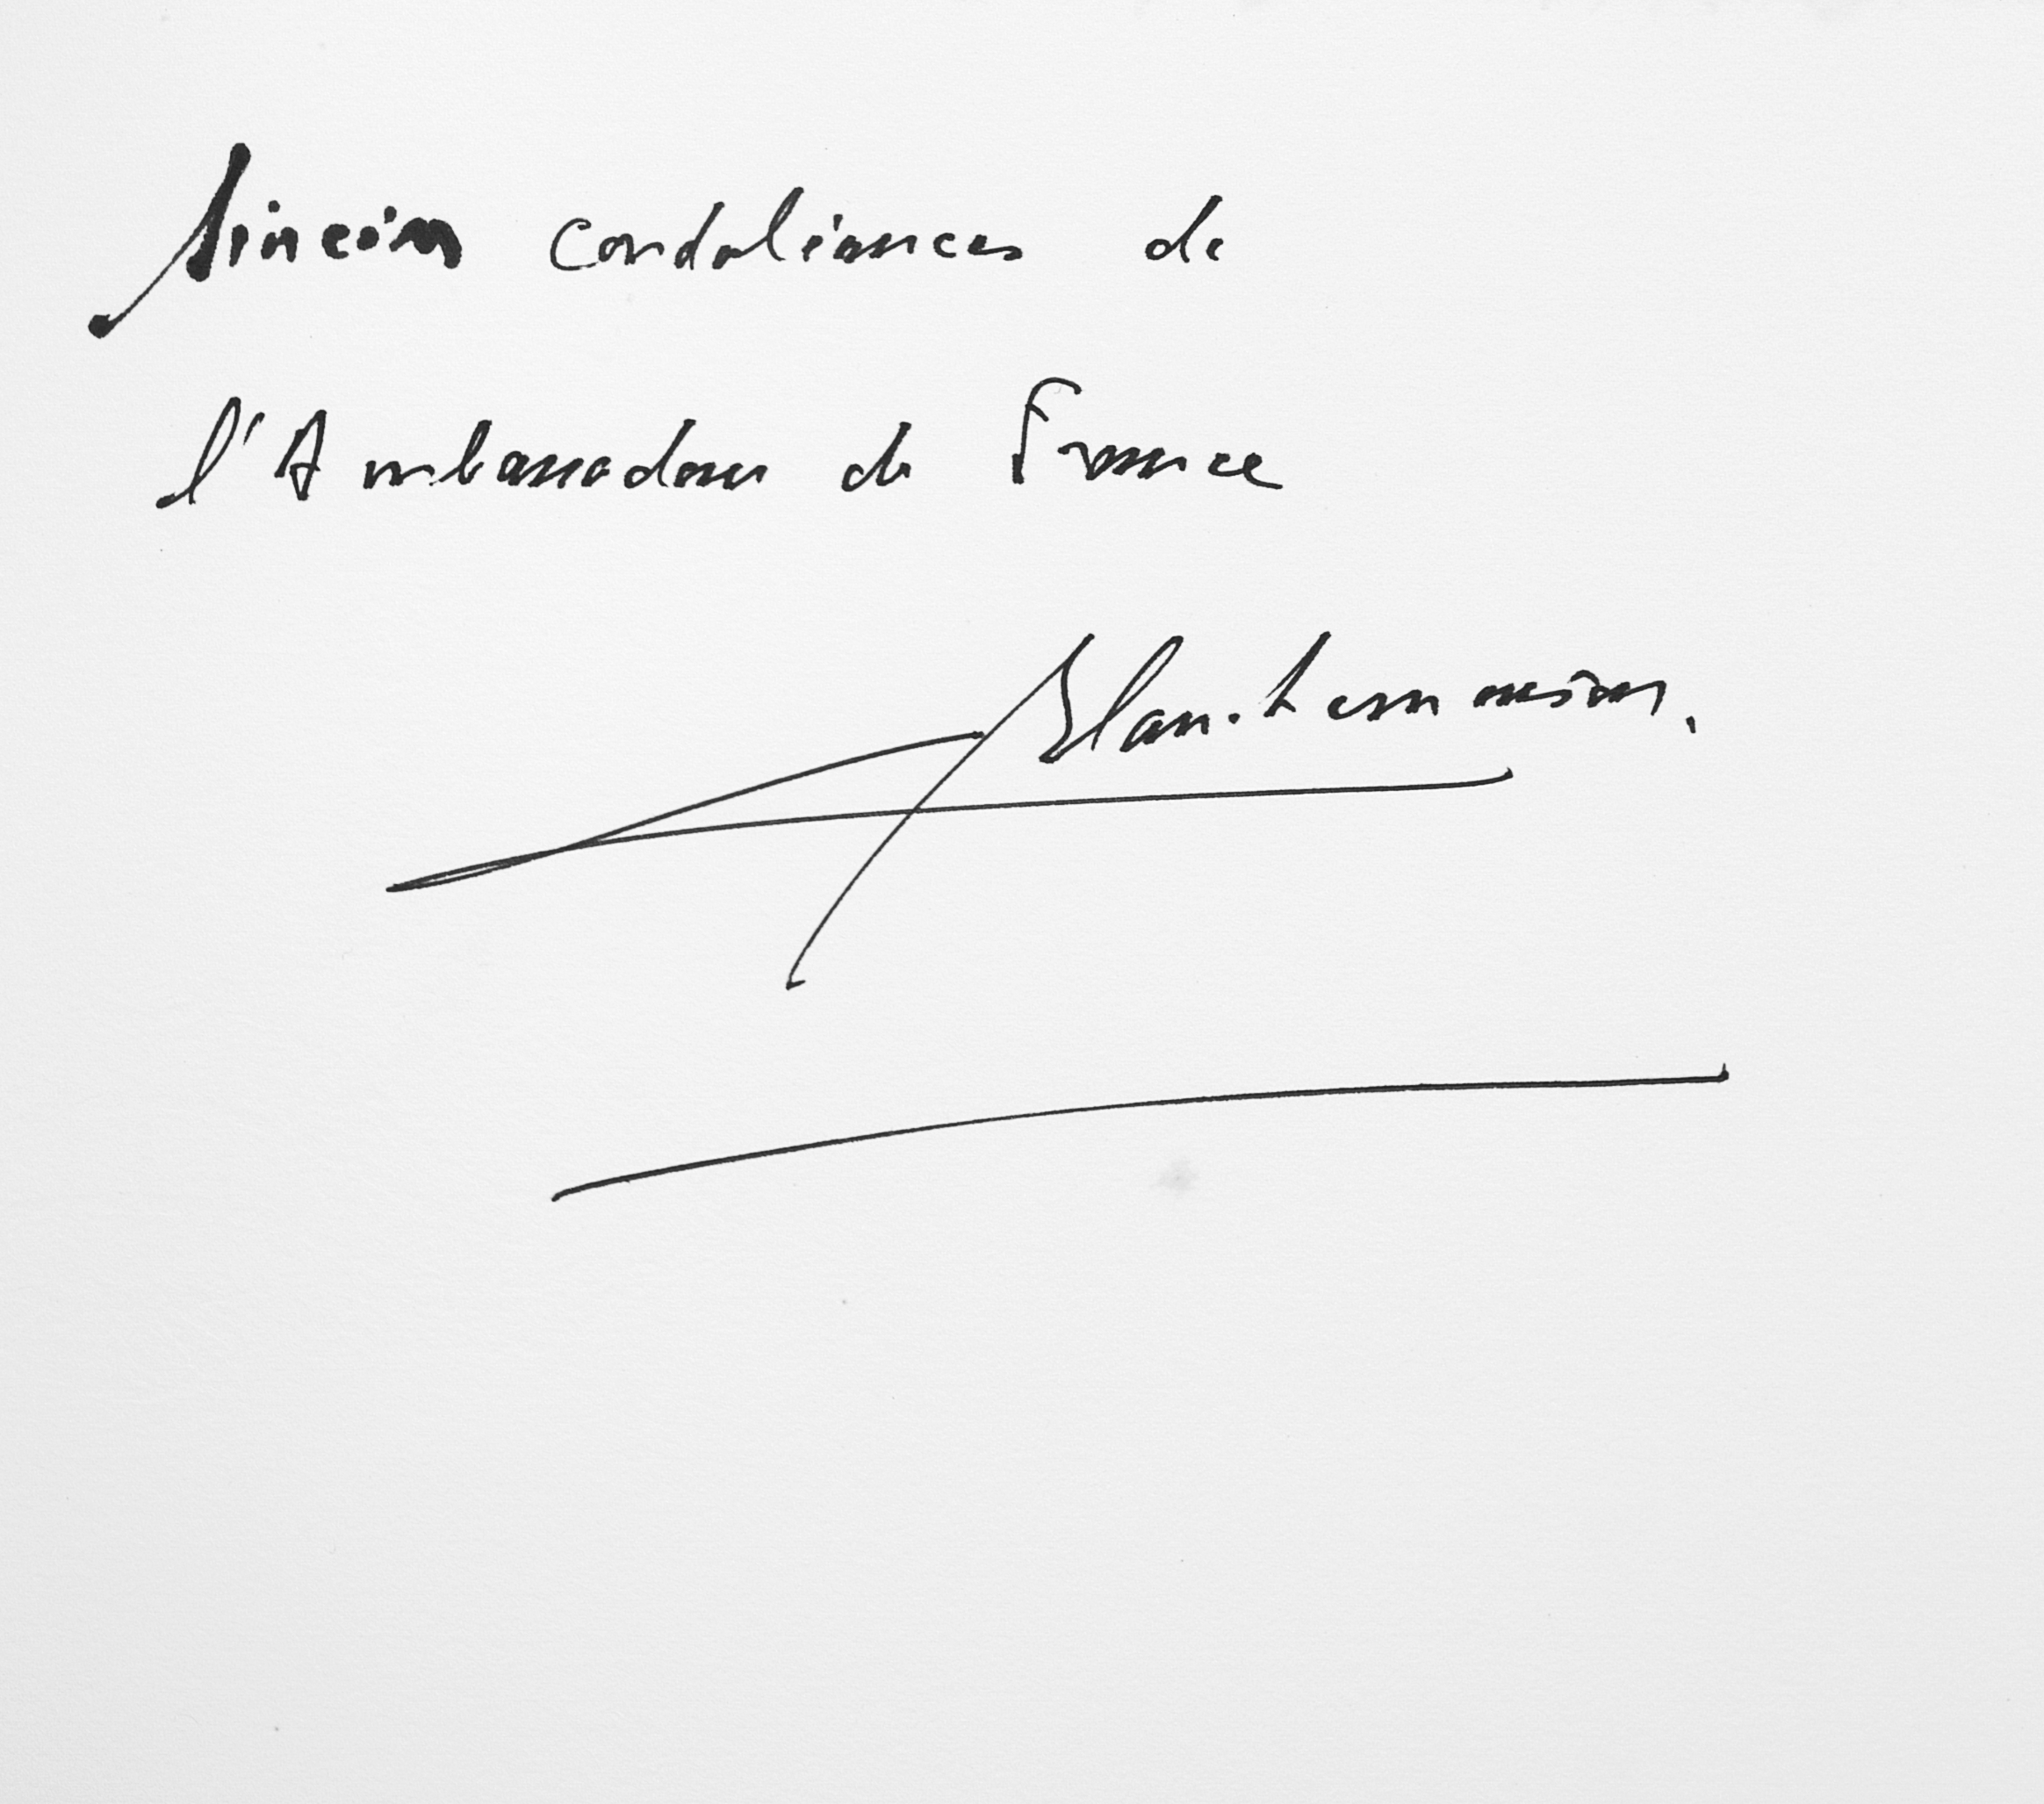 Sincères condoléances de
l'Ambassadeur de France